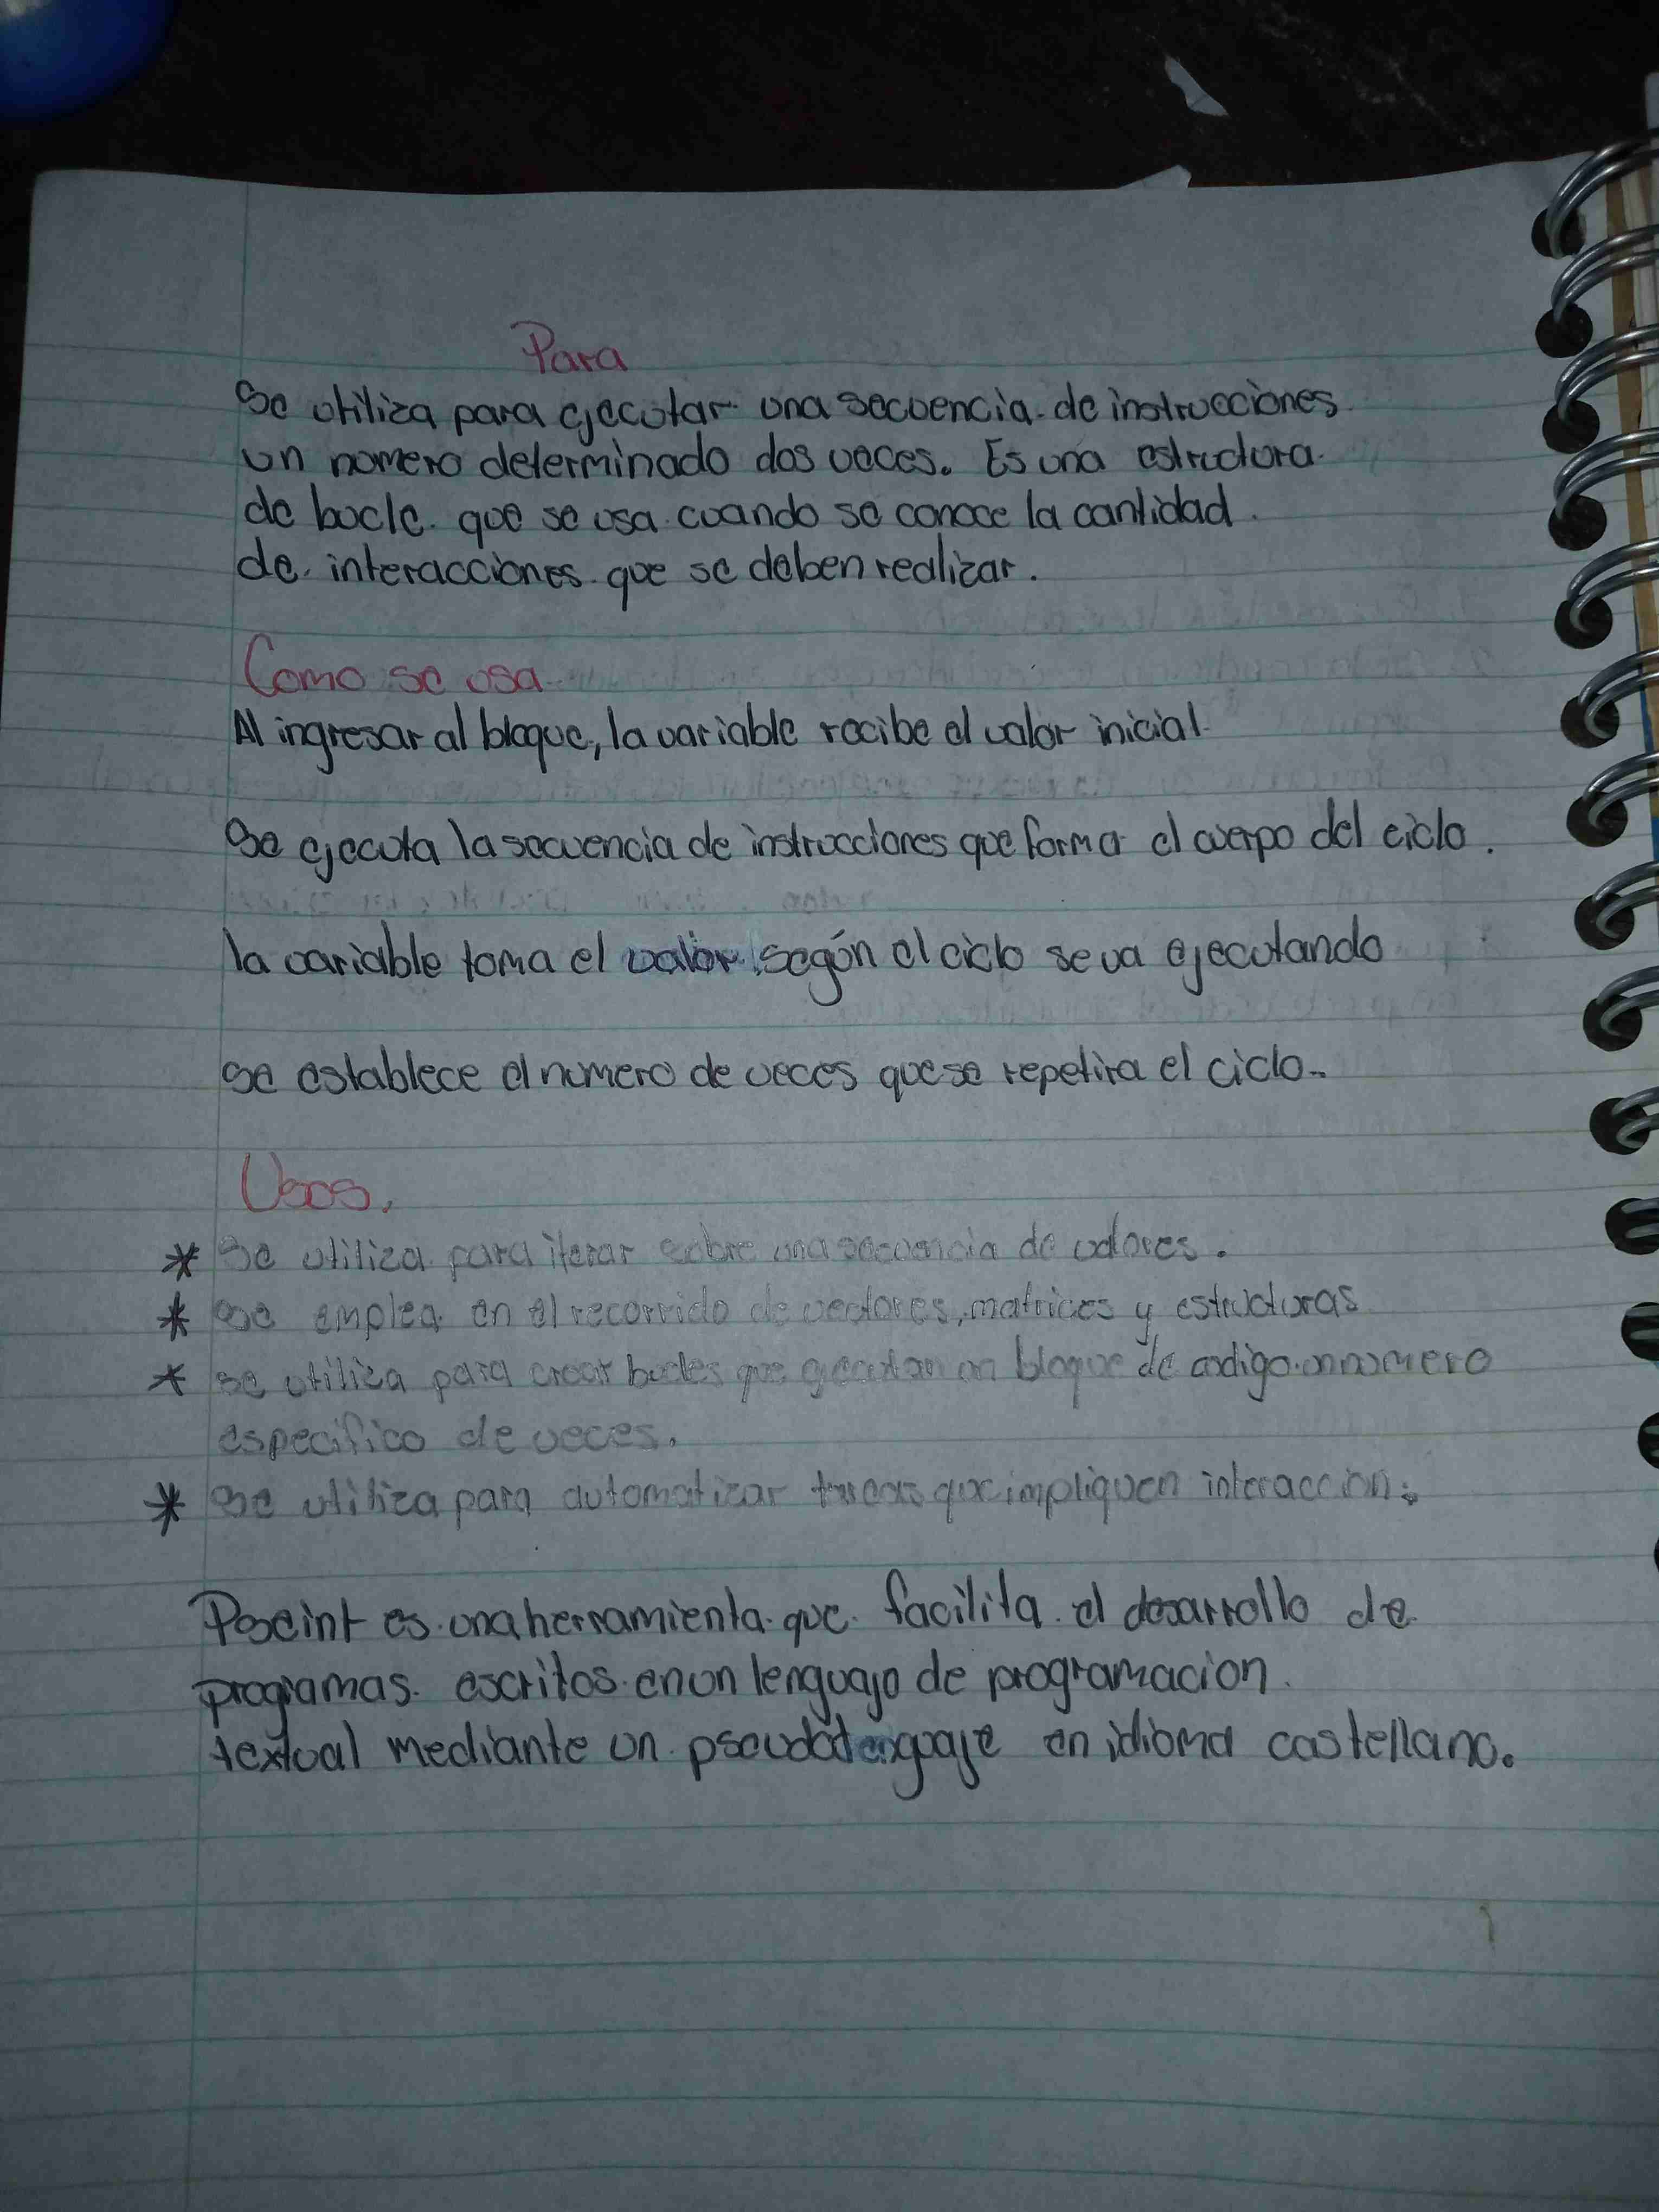 Para
Se utiliza para ejecutar una secuencia de instrucciones
un numero determinado dos veces. Es una estructura
de bucle que se usa cuando se conoce la cantidad
de interacciones que se deben realizar.
Como se usa
Al ingresar al bloque, la variable recibe el valor inicial
Se ejecuta la secuencia de instrucciones que forma el cuerpo del ciclo.
la variable toma el valor según el ciclo se va ejecutando
se establece el numero de veces que se repetira el ciclo.
Usos.
* Se utiliza para iterar sobre una secuencia de valores.
* se emplea en el recorrido de vectores, matrices y estructuras
* se utiliza para crear bucles que ejecutan un bloque de codigo un numero
especifico de veces.
* se utiliza para automatizar tareas que impliquen interaccion.
Pseint es una herramienta que facilita el desarrollo de
programas escritos en un lenguajo de programacion
textual mediante un pseudolenguaje en idioma castellano.